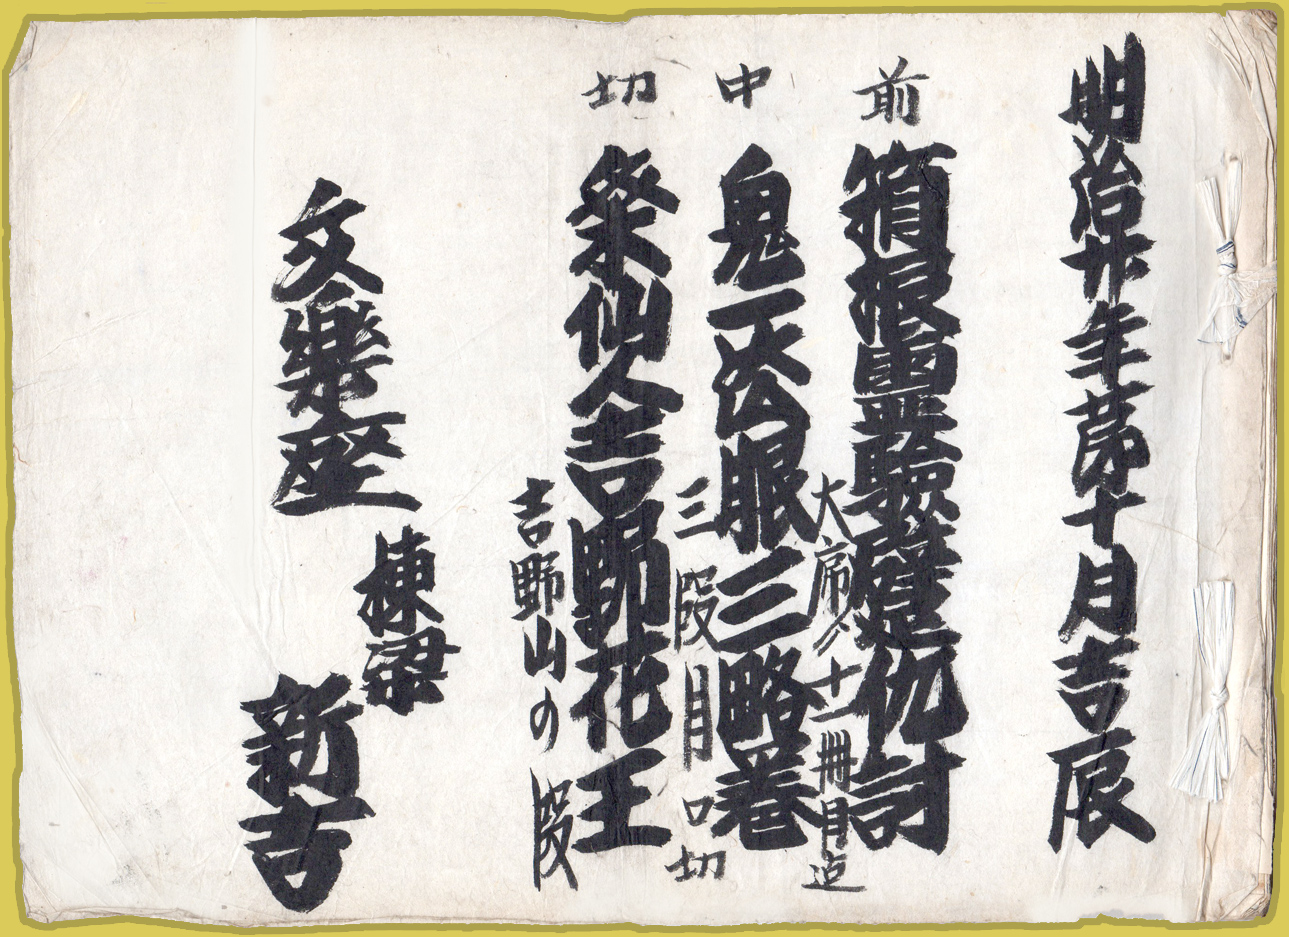 明治廿年第十月吉辰
前 箱根霊験躄仇討
大序ゟ十一冊目迄
中 鬼一法眼三略巻
三段目口切
切 粂仙人吉野花王
吉野山の段
文樂座
棟梁
新吉